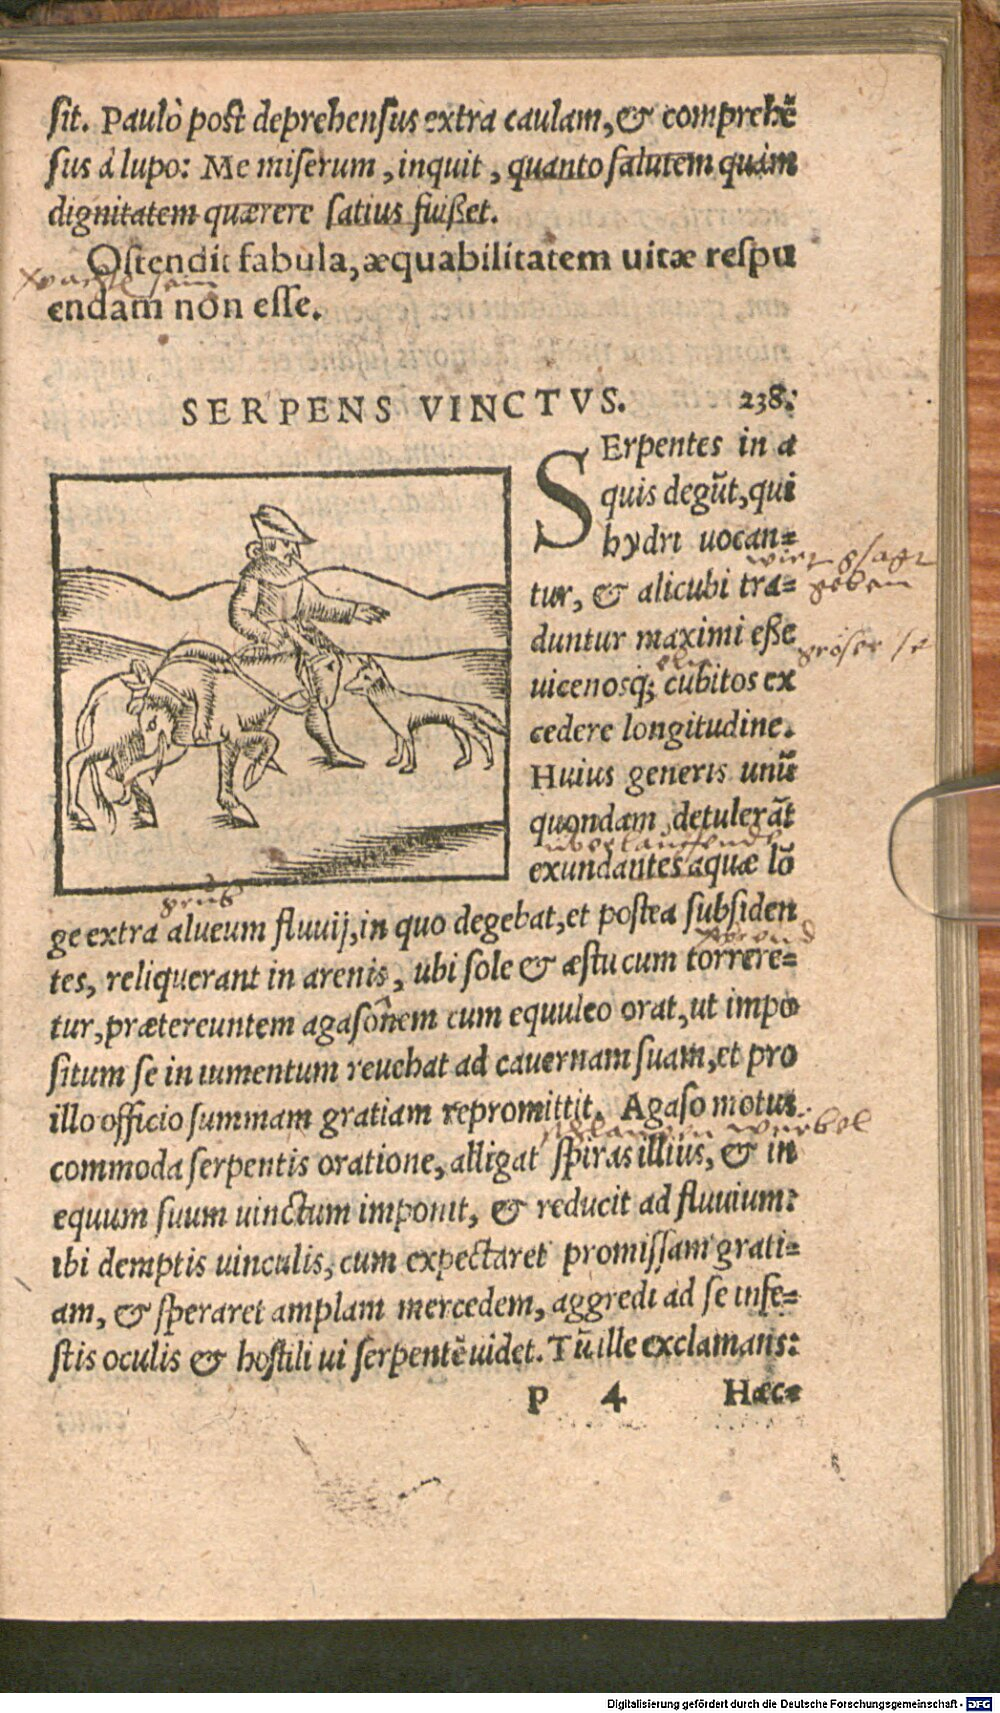 sit. Paulò post deprehensus extra caulam, & comprehẽ
sus à lupo: Me miserum, inquit, quanto salutem quàm
dignitatem quærere satius fuißet.
Ostendit fabula, æquabilitatem uitæ respu
endam non esse.
SERPENS VINCTVS. 238.
SErpentes in a
quis degũt, qui
hydri uocan=
tur, & alicubi tra=
duntur maximi eße
uicenosq; cubitos ex
cedere longitudine.
Huius generis unũ
quondam detulerãt
exundantes aquæ lõ
ge extra alueum fluuij, in quo degebat, et postea subsiden
tes, reliquerant in arenis, ubi sole & æstu cum torrere=
tur, prætereuntem agasonem cum equuleo orat, ut impo
situm se in iumentum reuehat ad cauernam suam, et pro
illo officio summam gratiam repromittit. Agaso motus
commoda serpentis oratione, alligat spiras illius, & in
equum suum uinctum imponit, & reducit ad fluuium:
ibi demptis uinculis, cum expectaret promissam grati=
am, & speraret amplam mercedem, aggredi ad se infe=
stis oculis & hostili ui serpentẽ uidet. Tũ ille exclamans:
P 4 Hæc=
Digitalisierung gefördert durch die Deutsche Forschungsgemeinschaft - DFG